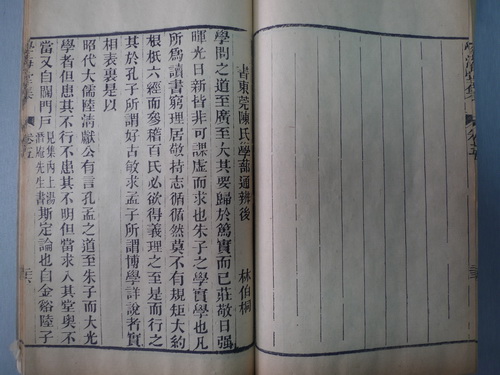 書東莞陳氏學蔀通辨後
林伯桐
學問之道至廣至大其要歸於篤實而已莊敬日强
暉光日新皆非可課虛而求也朱子之學實學也凡
所爲讀書窮理居敬持志循循然莫不有規矩大約
根柢六經而參稽百氏必欲得義理之至是而行之
其於孔子所謂好古敏求孟子所謂博學詳說者實
相表裏是以
昭代大儒陸清獻公有言孔孟之道至朱子而大光
學者但患其不行不患其不明但當求入其堂奧不
當又自闢門戸見集內上湯潛庵先生書斯定論也自金谿陸子
學海堂集